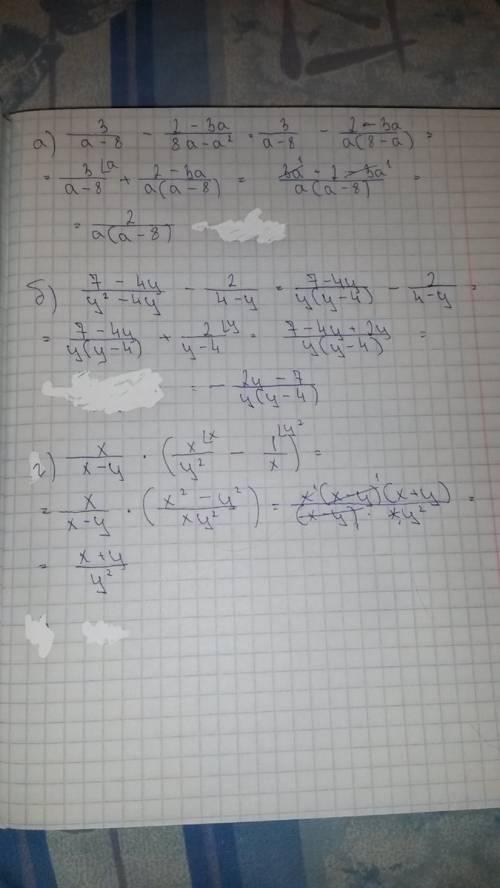 а) 3/(a-8) - (2-3a)/(8a-a²) = 3/(a-8) - (2-3a)/(a(8-a)) =
= 3⌊a/(a-8) + (2-3a)/(a(a-8)) = (3a¹+2-3a¹)/(a(a-8)) =
= 2/(a(a-8))
б) (7-4y)/(y²-4y) - 2/(4-y) = (7-4y)/(y(y-4)) - 2/(4-y) =
= (7-4y)/(y(y-4)) + 2⌊y/(y-4) = (7-4y+2y)/(y(y-4)) =
= - (2y-7)/(y(y-4))
г) x/(x-y) · (x⌊x/y² - 1⌊y²/x) =
= x/(x-y) · ((x²-y²)/(xy²)) = (x¹(x-y)¹(x+y))/((x-y)·xy²) =
= (x+y)/y²